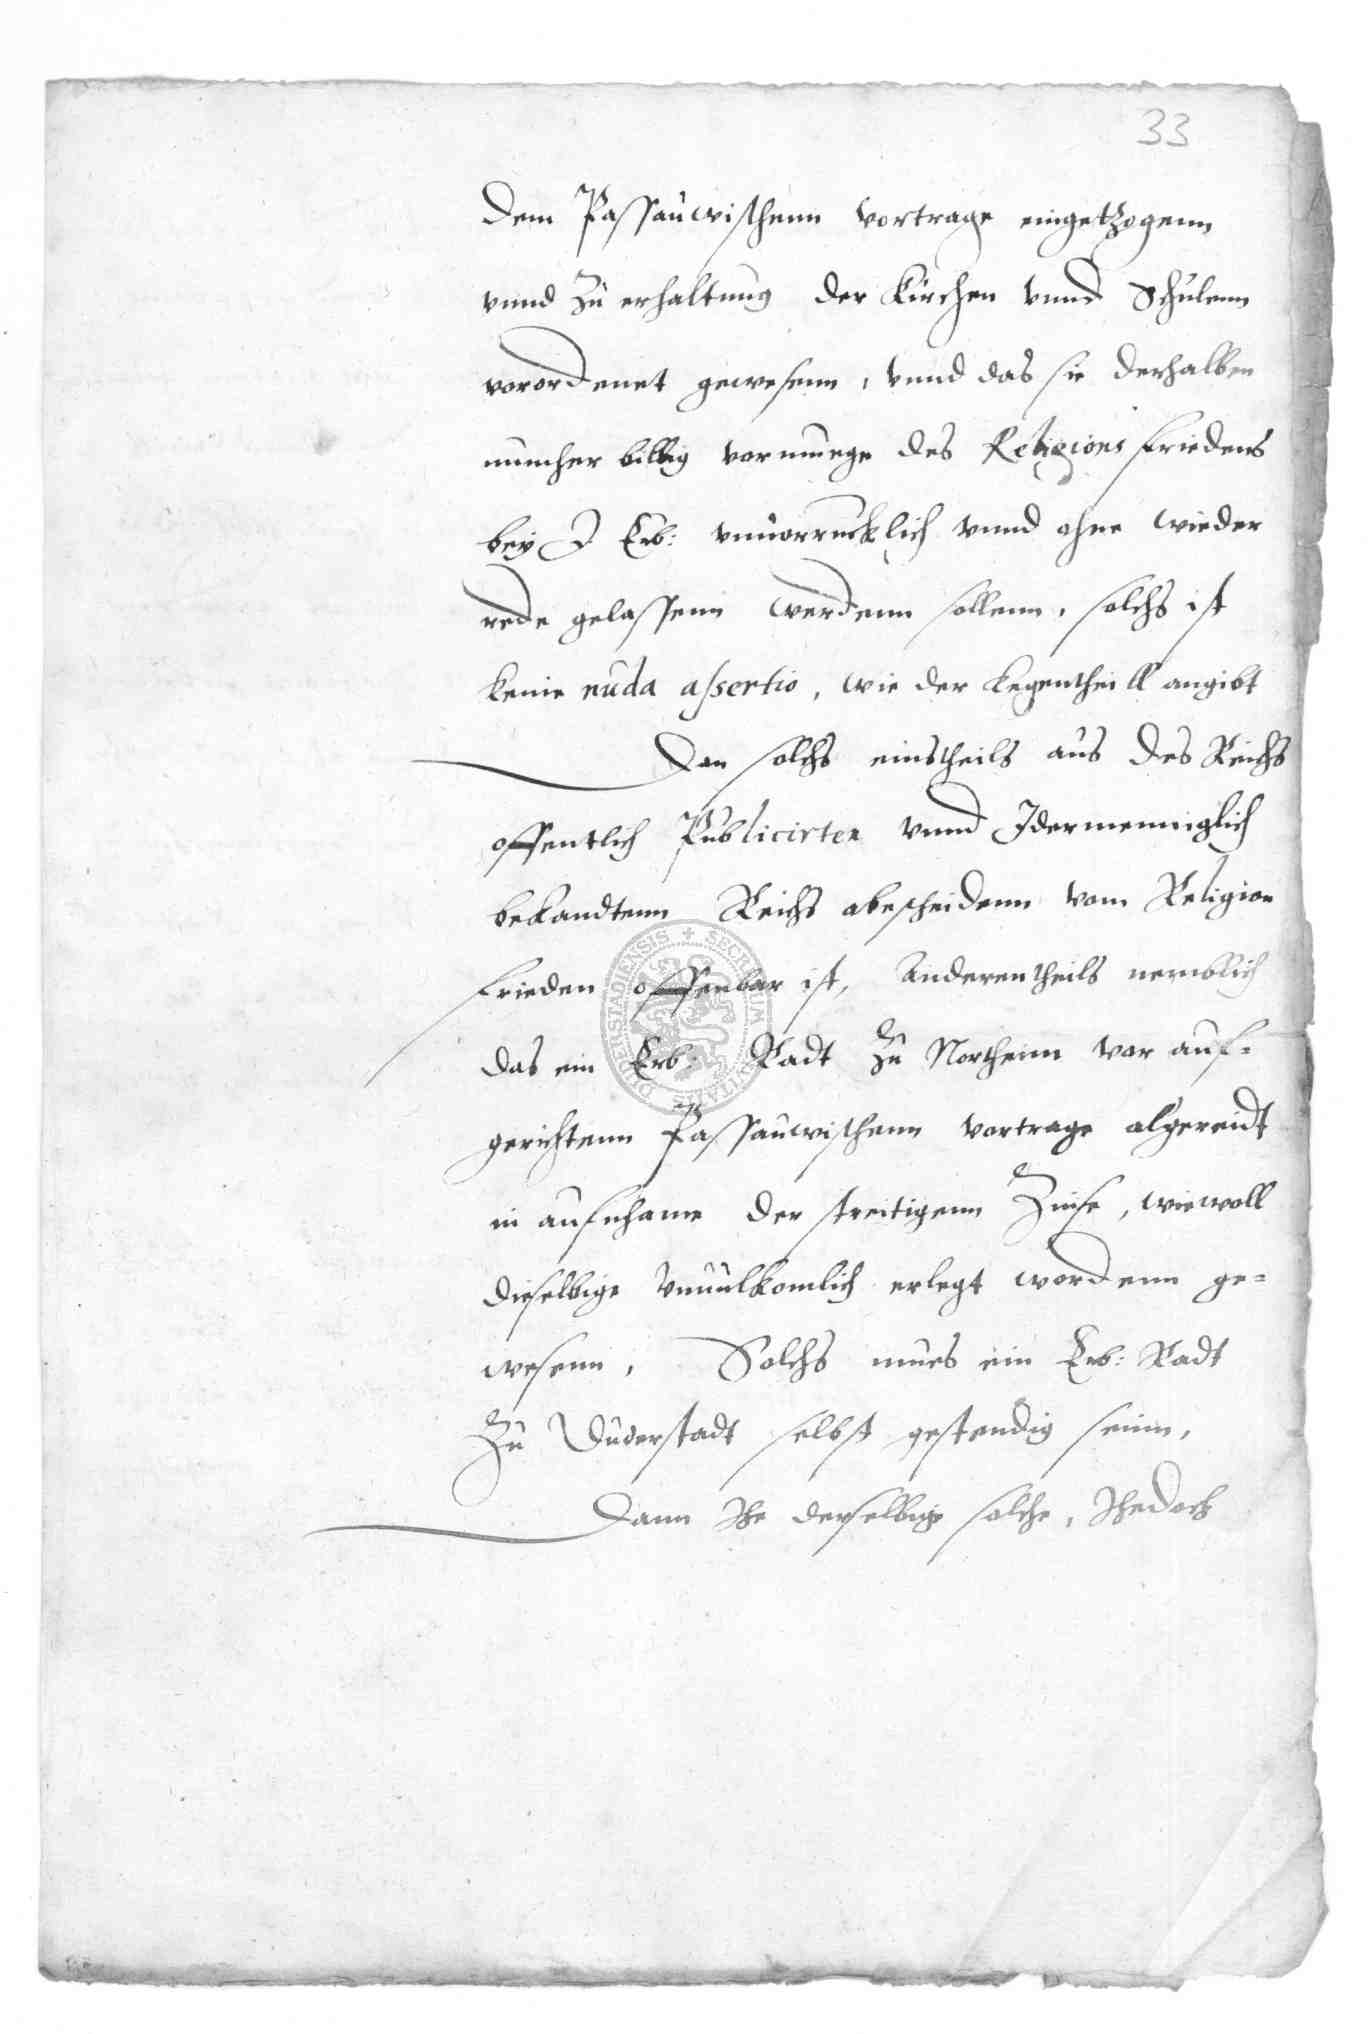 33
dem Passauwischenn vortrage eingetzogenn
vnnd zu erhaltung der Kirchen vnnd Schulenn
vorordenet gewesenn, vnnd das sie derhalben
nunher billig vormuege des Religions friedens
bey J Erb: vnuorrucklich vnnd ohne wieder
rede gelassenn werdenn sollenn, solchs ist
keine nuda assertio, wie der kegentheill angibt
Dan solchs einstheils aus des Reichs
offentlich Publicirten vnnd Jdermenniglich
bekandtenn Reichs abescheidenn vom Religion
frieden offenbar ist, Anderentheils nemblich
das ein Erb: Radt zu Northeim vor auf-
gerichtenn Passauwischenn vortrage algereidt
in aufnhame der streitigenn Zinse, wiewoll
dieselbige vnuulkomlich erlegt wordenn ge-
wesenn, Solchs mues ein Erb: Radt
zu Duderstadt selbst gestendig seinn,
Dann Jhe derselbige solche, Jhedoch
SECRETUM CIVITATIS DUDERSTADIENSIS